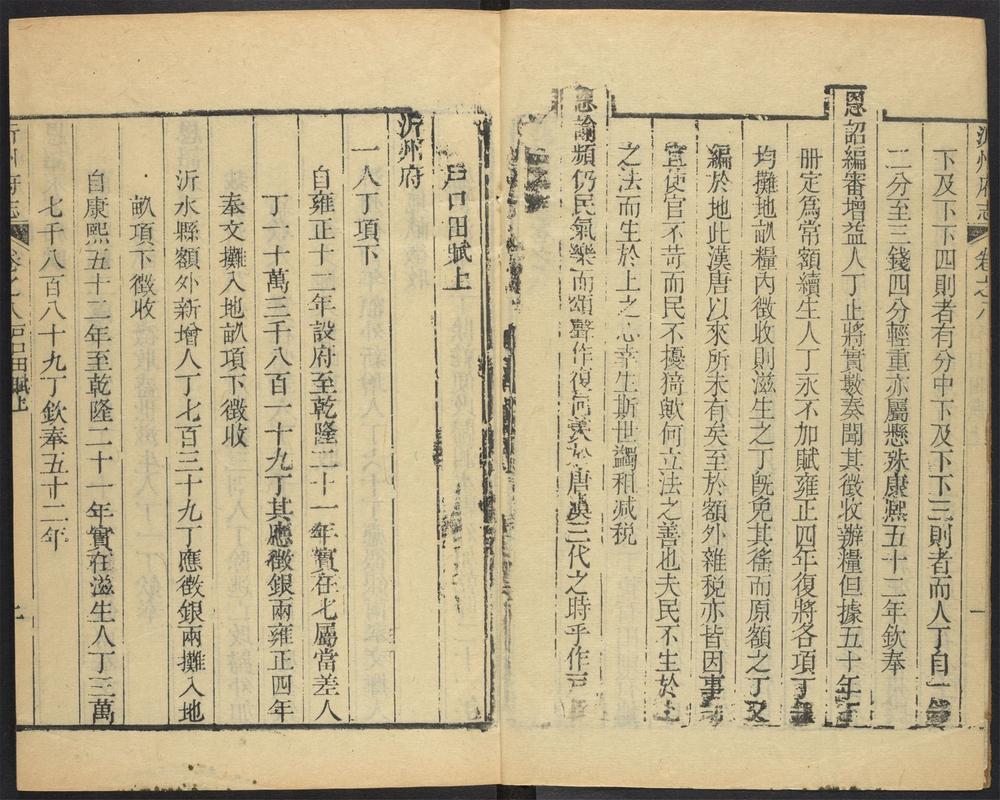 沂州府志 卷之八 一
下及下下四則者有分中下及下下三則者而人丁自一
二分至三錢四分輕重亦屬懸殊康熙五十二年欽奉
恩詔編審增益人丁止將實數奏聞其徵收辦糧但據五十年丁
册定爲常額續生人丁永不加賦雍正四年復將各項丁
均攤地畝糧內徵收則滋生之丁既免其徭而原額之丁又
編於地此漢唐以來所未有矣至於額外雜稅亦皆因事
宜使官不苛而民不擾猗歟何立法之善也夫民不生於上
之法而生於上之心幸生斯世蠲租減税
恩諭頻仍民氣樂而頌聲作復何羨於唐虞三代之時乎作戸
戸口田賦上
沂州府
一人丁項下
自雍正十二年設府至乾隆二十一年實在七屬當差人
丁一十萬三千八百一十九丁其應徵銀兩雍正四年
奉文攤入地畝項下徵收
沂水縣額外新增人丁七百三十九丁應徵銀兩攤入地
畝項下徵收
自康熙五十二年至乾隆二十一年實在滋生人丁三萬
七千八百八十九丁欽奉五十二年
沂州府志 卷之八 戸口田賦上